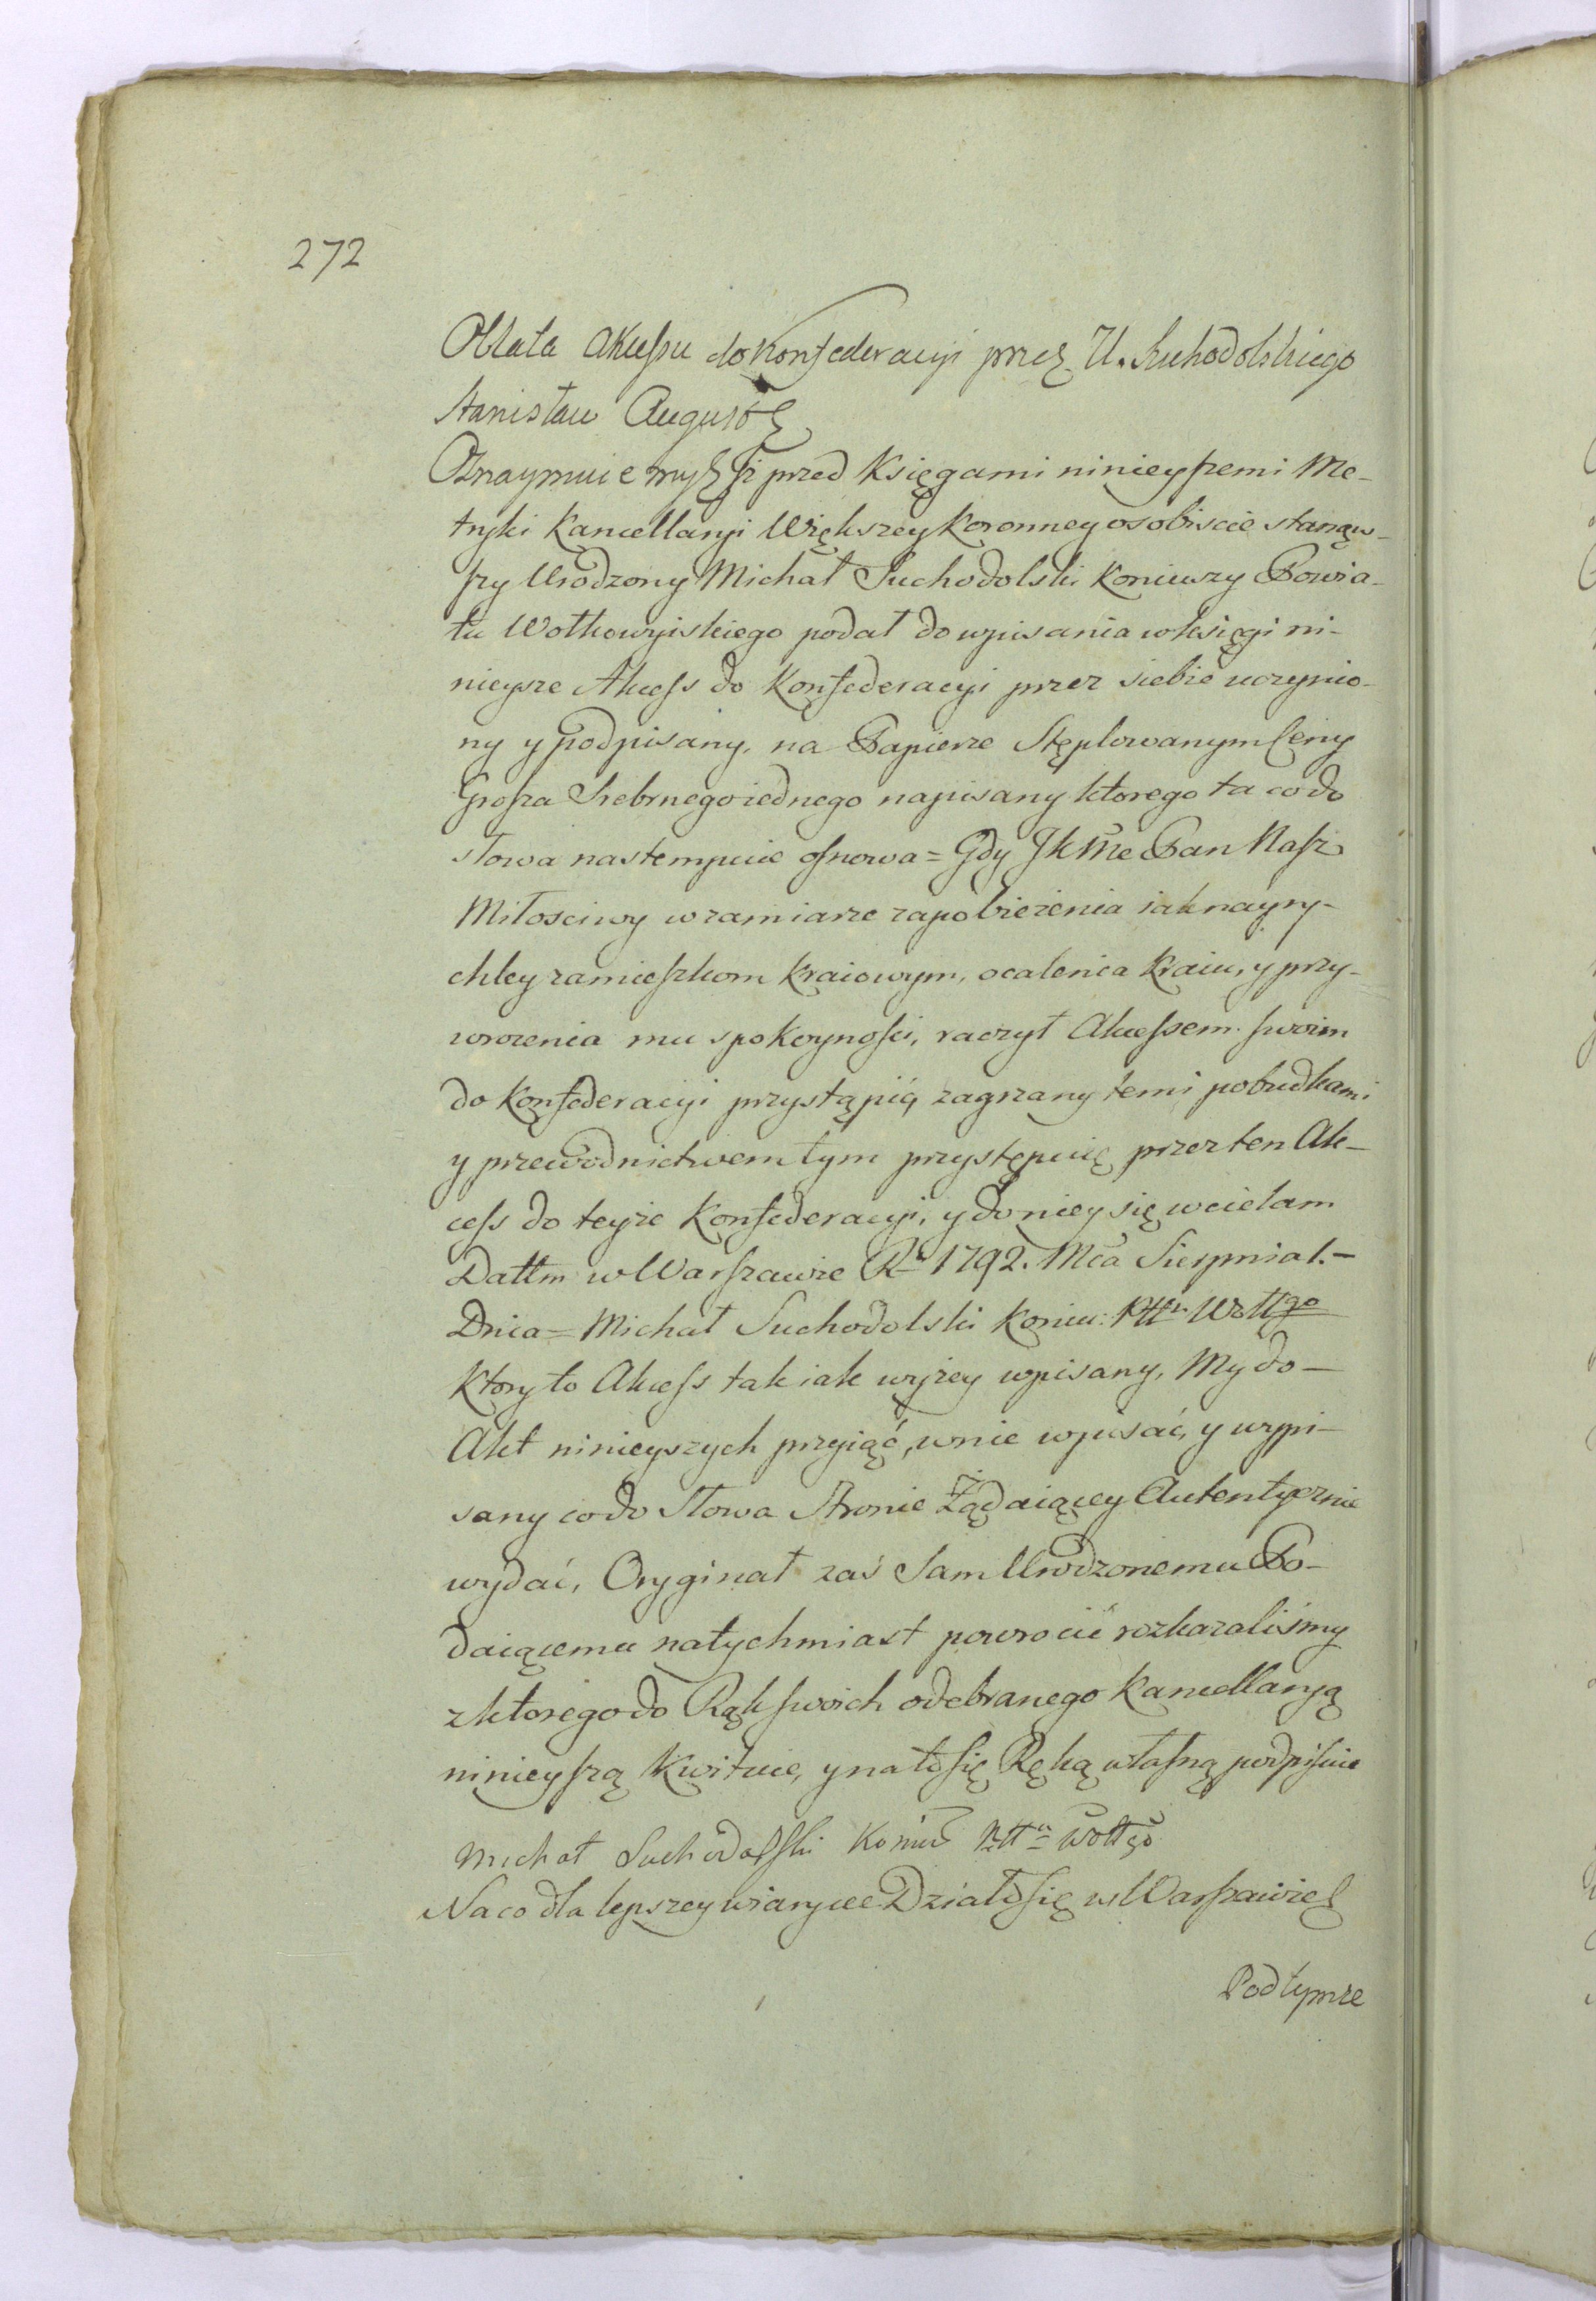 272
Oblata akcessu do Konfederacyi przez U. Suchodolskiego
Stanisław August &
Oznaymuiemy & iż przed Księgami ninieyszemi Me-
tryki Kancellaryi Większey Koronney osobiscie stanąw-
szy Urodzony Michał Suchodolski Koniuszy Powia-
tu Wołkowyiskiego podał do wpisania w księgi ni-
nieysze Akcess do Konfederacyi przez siebie uczynio-
ny y podpisany, na Papierze Stęplowanym Ceny
Grosza Srebrnego iednego napisany ktorego ta co do
słowa nastempuie osnowa = Gdy JKMć Pan Nasz
Miłosciwy w zamiarze zapobieżenia iak nayry-
chley zamieszkom kraiowym, ocalenia kraiu, y przy-
wrocenia mu spokoynosci, raczył Akcessem swoim
do Konfederacyi przystąpić, zagrzany temi pobudkami
y przewodnictwem tym przystępuię przez ten Ak-
cess do teyże Konfederacyi, y do niey się wcielam
Dattm w Warszawie Ru 1792. Mca Sierpnia 1. -
Dnia = Michał Suchodolski Koniu: Pttu Wołłgo
Ktory to Akcess tak iak wyżey wpisany, My do -
Akt ninieyszych przyiąć, w nie wpisać, y wypi-
sany co do Słowa Stronie Żądaiącey Autentycznie
wydać, Oryginał zaś Sam Urodzonemu Po-
daiącemu natychmiast powrocić rozkazaliśmy
z ktorego do Rąk swoich odebranego Kancellaryą
ninieyszą kwituie, y na to się Ręką własną podpisuie
Michał Suchodolski Koniu Pttu Wołłgo
Na co dla lepszey wiary &c Działo się w Warszawie &
Pod tymże